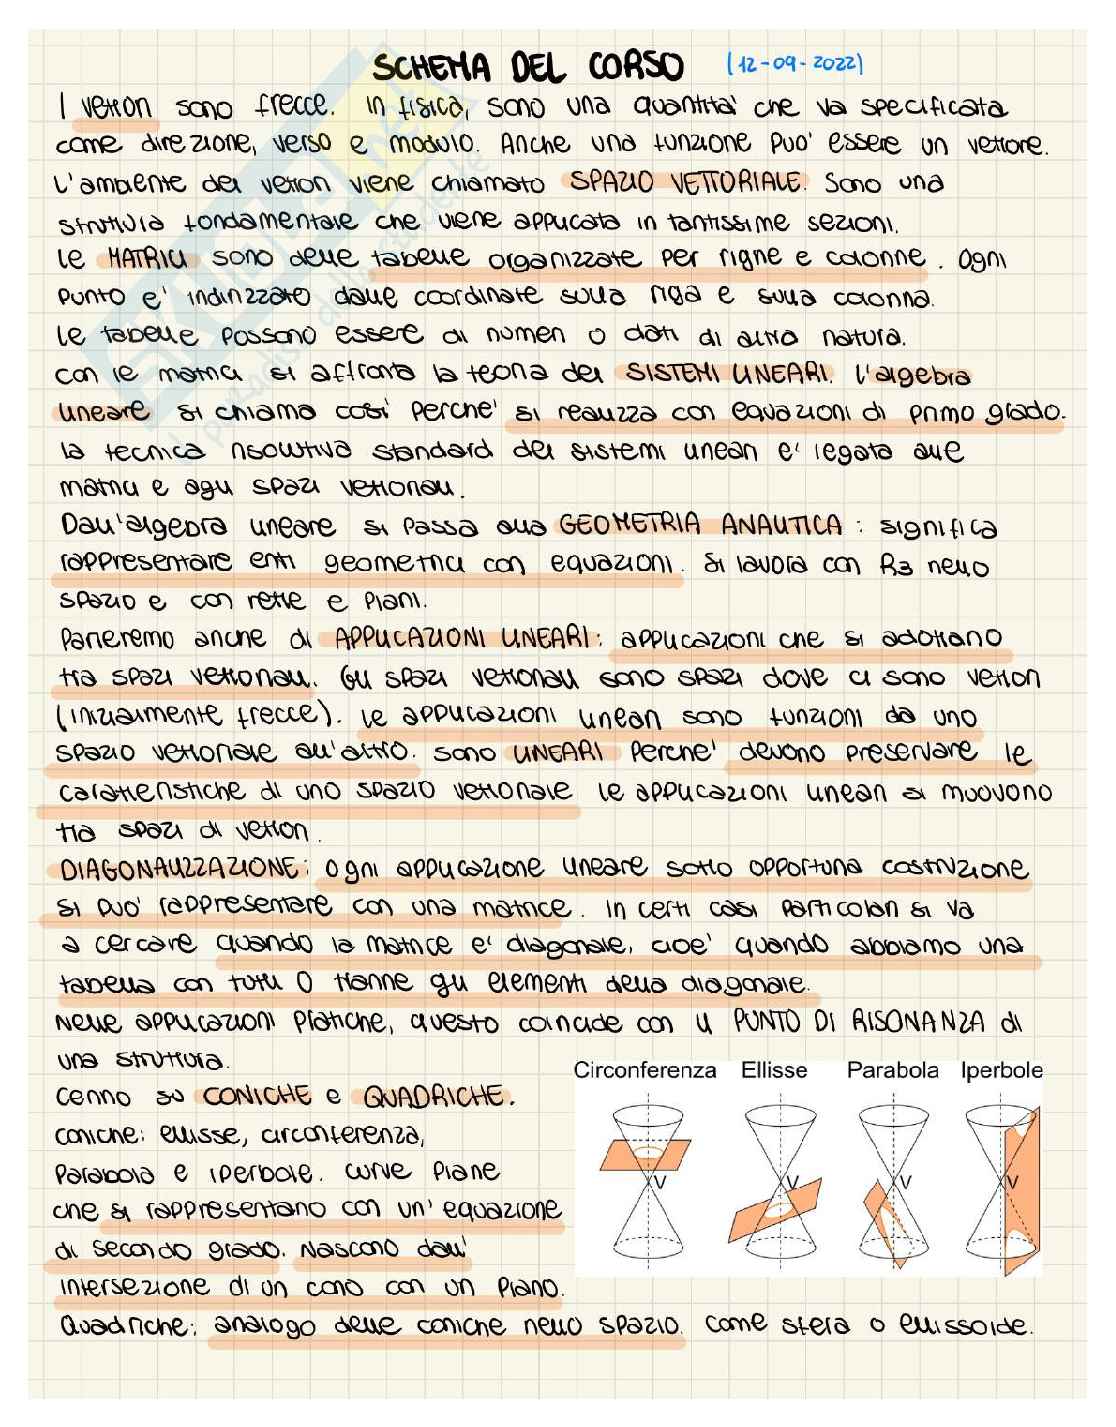 SCHEMA DEL CORSO (12-09-2022)
I vettori sono frecce. In fisica, sono una quantita' che va specificata
come direzione, verso e modulo. Anche una funzione puo' essere un vettore.
L'ambiente dei vettori viene chiamato SPAZIO VETTORIALE. Sono una
struttura fondamentale che viene applicata in tantissime sezioni.
Le MATRICI sono delle tabelle organizzate per righe e colonne. Ogni
punto e' indirizzato dalle coordinate sulla riga e sulla colonna.
Le tabelle possono essere di numeri o dati di altra natura.
Con le matrici si affronta la teoria dei SISTEMI LINEARI. L'algebra
lineare si chiama cosi' perche' si realizza con equazioni di primo grado.
La tecnica risolutiva standard dei sistemi lineari e' legata alle
matrici e agli spazi vettoriali.
Dall'algebra lineare si passa alla GEOMETRIA ANALITICA: significa
rappresentare enti geometrici con equazioni. Si lavora con R3 nello
spazio e con rette e piani.
Parleremo anche di APPLICAZIONI LINEARI: applicazioni che si adottano
tra spazi vettoriali. Gli spazi vettoriali sono spazi dove ci sono vettori
(inizialmente frecce). Le applicazioni lineari sono funzioni da uno
spazio vettoriale all'altro. Sono LINEARI perche' devono preservare le
caratteristiche di uno spazio vettoriale le applicazioni lineari si muovono
tra spazi di vettori.
DIAGONALIZZAZIONE: ogni applicazione lineare sotto opportuna costruzione
si puo' rappresentare con una matrice. In certi casi particolari si va
a cercare quando la matrice e' diagonale, cioe' quando abbiamo una
tabella con tutti 0 tranne gli elementi della diagonale.
Nelle applicazioni pratiche, questo coincide con il PUNTO DI RISONANZA di
una struttura.
Cenno su CONICHE e QUADRICHE.
Coniche: ellisse, circonferenza,
parabola e iperbole. Curve piane
che si rappresentano con un'equazione
di secondo grado. Nascono dall'
intersezione di un cono con un piano.
Circonferenza Ellisse Parabola Iperbole
V V V V
Quadriche: analogo delle coniche nello spazio. Come sfera o ellissoide.